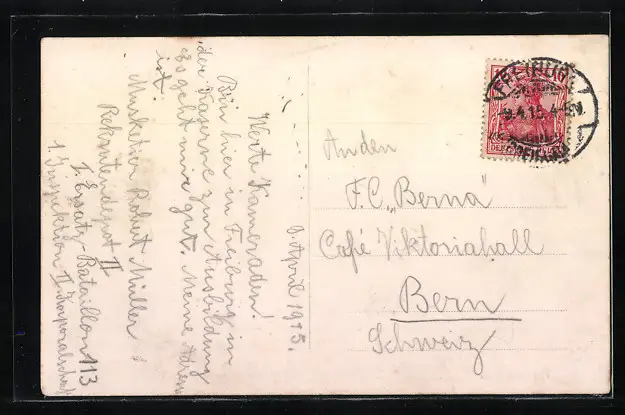 9. April 1915.
Werte Kameraden!
Bin hier in Freiburg in
der Kaserne zur Ausbildung
Es geht mir gut. Meine Adress
ist.
Musketier Robert Müller
Rekrutendepot II
I. Ersatz-Bataillon 113
1. Inspektion II Korporalschaft
An den
F.C. „Berna"
Café Viktoriahall
Bern
Schweiz
FREIBURG
9.4.15.